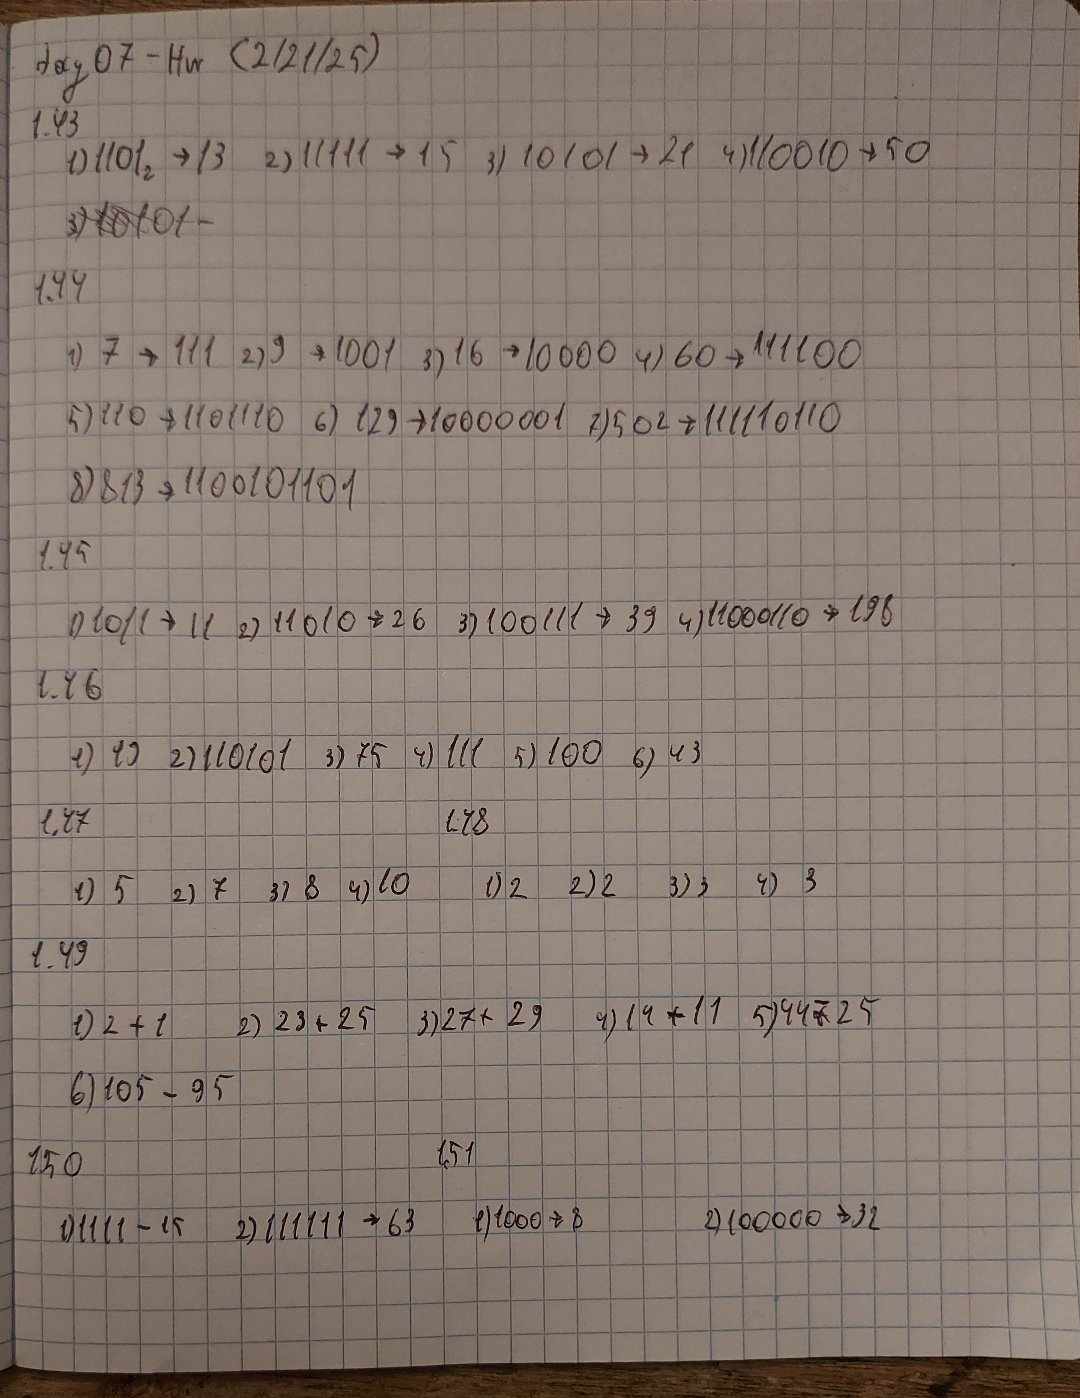 day 07 - Hw (2/21/25)
1.43
1) 1101₂ → 13 2) 11111 → 15 3) 10101 → 21 4) 110010 → 50
3) 10101 -
1.44
1) 7 → 111 2) 9 → 1001 3) 16 → 10000 4) 60 → 111100
5) 110 → 1101110 6) 129 → 10000001 7) 502 → 111110110
8) 813 → 1100101101
1.45
1) 1011 → 11 2) 11010 → 26 3) 100111 → 39 4) 11000110 → 198
1.46
1) 49 2) 110101 3) 75 4) 111 5) 100 6) 43
1.47 1.48
1) 5 2) 7 3) 8 4) 10 1) 2 2) 2 3) 3 4) 3
1.49
1) 2 + 1 2) 23 + 25 3) 27 + 29 4) 14 + 11 5) 44 25
6) 105 - 95
1.50 1.51
1) 1111 - 15 2) 111111 → 63 1) 1000 → 8 2) 100000 → 32